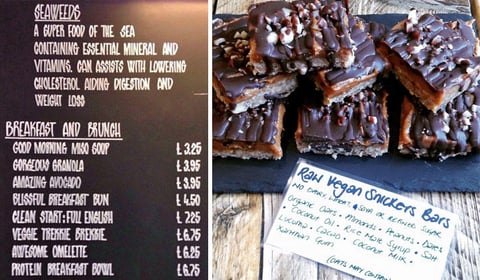 SEAWEEDS
A SUPER FOOD OF THE SEA
CONTAINING ESSENTIAL MINERAL AND
VITAMINS. CAN ASSISTS WITH LOWERING
CHOLESTEROL AIDING DIGESTION AND
WEIGHT LOSS
BREAKFAST AND BRUNCH
GOOD MORNING MISO SOUP £3.25
GORGEOUS GRANOLA £3.95
AMAZING AVOCADO £3.95
BLISSFUL BREAKFAST BUN £4.50
CLEAN START: FULL ENGLISH £7.25
VEGGIE TREKKIE BREKKIE £6.75
AWESOME OMELETTE £6.25
PROTEIN BREAKFAST BOWL £6.75
Raw Vegan Snickers Bars
NO DAIRY, WHEAT, SOYA OR REFINED SUGAR
Organic Oats • Almonds • Peanuts • Dates
Coconut Oil • Rice Malt Syrup • Salt
Lucuma • Cacao • Coconut Milk •
Xanthan Gum
(OATS MAY CONTAIN